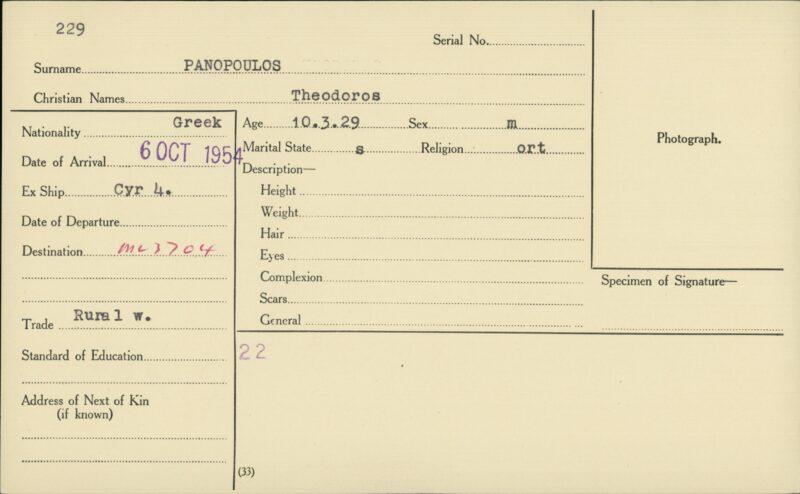 229
Serial No.
Surname PANOPOULOS
Christian Names Theodoros
Nationality Greek
Date of Arrival 6 OCT 1954
Ex Ship Cyr 4.
Date of Departure
Destination MC3704
Trade Rural w.
Standard of Education
Address of Next of Kin
(if known)
Age 10.3.29 Sex m
Marital State s Religion ort
Description—
Height
Weight
Hair
Eyes
Complexion
Scars
General
22
(33)
Photograph.
Specimen of Signature—